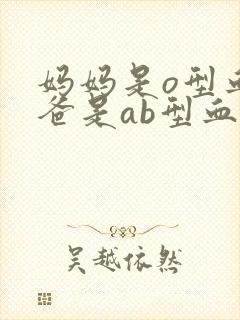 妈妈是o型血
爸是ab型血
吴越依然